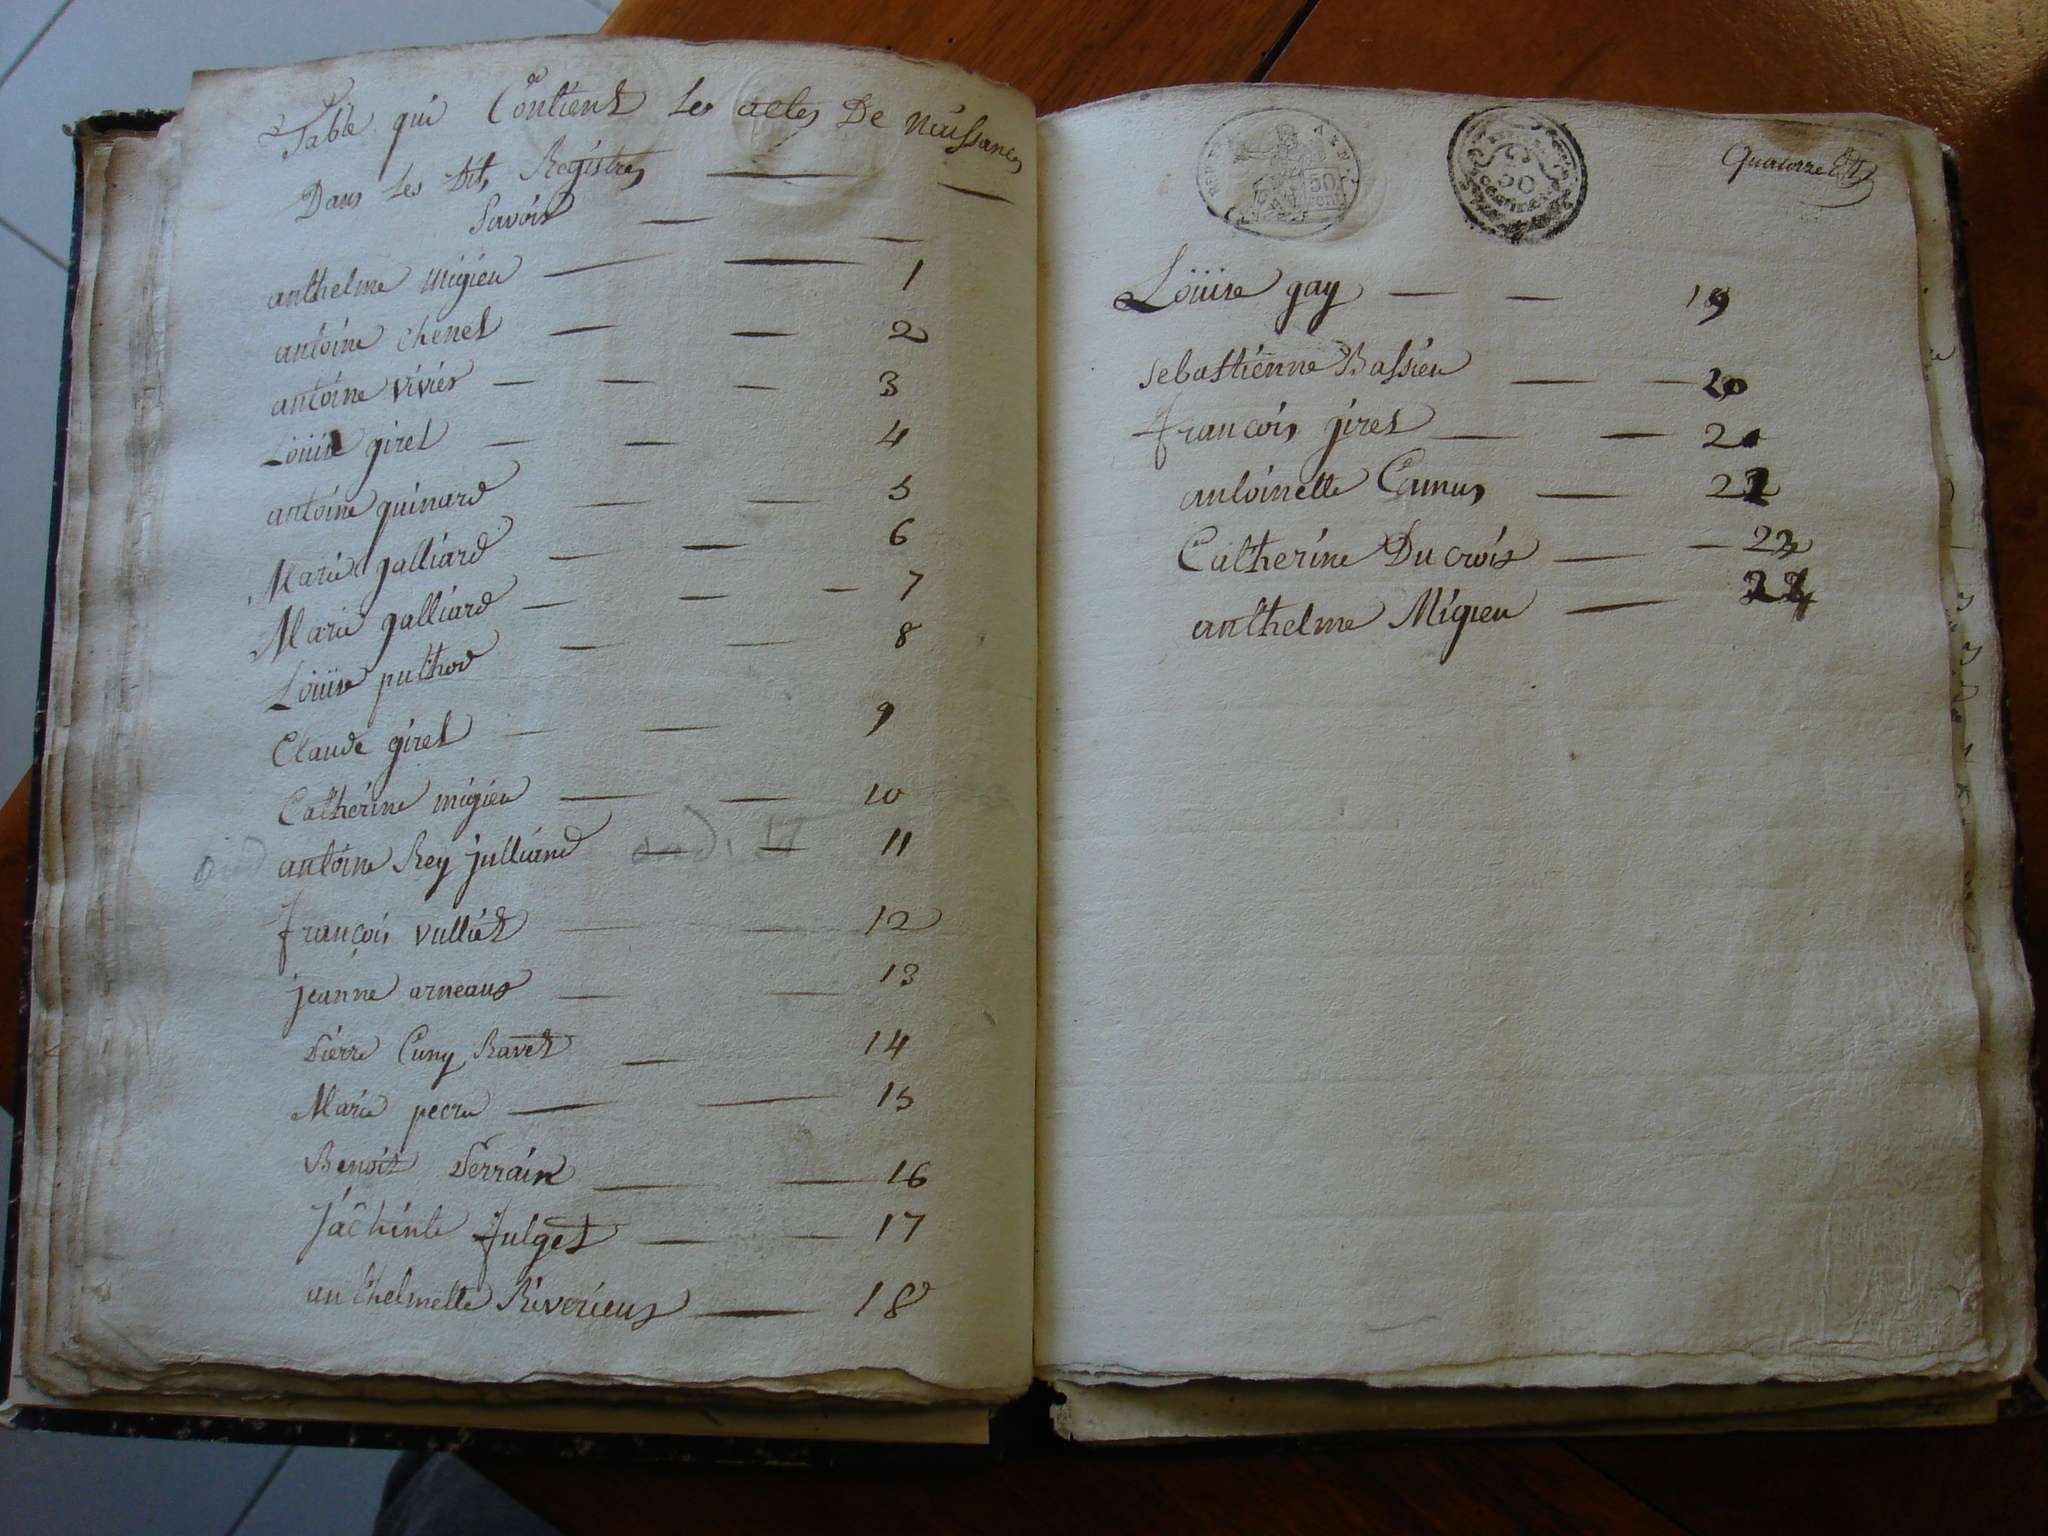 Table qui Contient les actes De Naissances
Dans les dits Registres
Savoir
anthelme Migieu — 1
antoine chenet — 2
antoine vivier — 3
Louise giret — 4
antoine guinard — 5
Marie galliard — 6
Marie galliard — 7
Louise puthod — 8
Claude giret — 9
Catherine migieu — 10
antoine Rey julliand — 11
françois vulliet — 12
jeanne arneaus — 13
Pierre Cuny Ravet — 14
Marie pecru — 15
Benoit Perrain — 16
Jachinte fulget — 17
anthelmette Riverieus — 18
50
50
Quatorze
Louise gay — 19
sebastienne Bassieu — 20
françois giret — 21
antoinette Camus — 22
Catherine Ducrois — 23
anthelme Migieu — 24